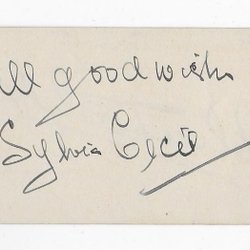 All good wishes
Sylvia Cecil